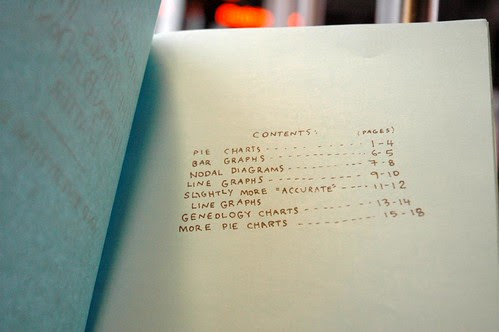 CONTENTS: (PAGES)
PIE CHARTS - - - - - - - - 1-4
BAR GRAPHS - - - - - - - - - - - 6-5
NODAL DIAGRAMS - - - - - - - - - 7-8
LINE GRAPHS - - - - - - - - - - - - 9-10
SLIGHTLY MORE "ACCURATE" - - - - - 11-12
LINE GRAPHS
GENEOLOGY CHARTS - - - - - - - - 13-14
MORE PIE CHARTS - - - - - - - - - 15-18